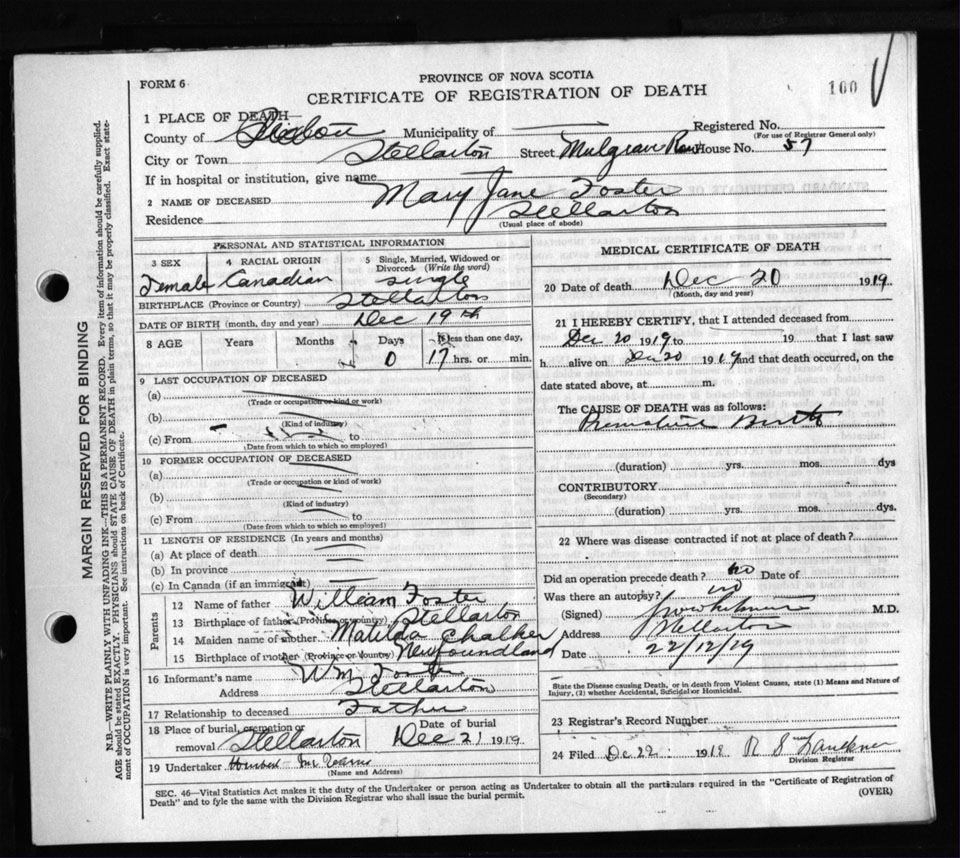 FORM 6
PROVINCE OF NOVA SCOTIA
CERTIFICATE OF REGISTRATION OF DEATH
100
1 PLACE OF DEATH
County of Pictou Municipality of Registered No.
(For use of Registrar General only)
City or Town Stellarton Street Mulgrave Row House No. 57
If in hospital or institution, give name
2 NAME OF DECEASED Mary Jane Foster
Residence Stellarton
(Usual place of abode)
PERSONAL AND STATISTICAL INFORMATION
3 SEX 4 RACIAL ORIGIN 5 Single, Married, Widowed or Divorced (Write the word)
Female Canadian single
BIRTHPLACE (Province or Country) Stellarton
DATE OF BIRTH (month, day and year) Dec 19th
8 AGE Years Months Days If less than one day,
0 17 hrs. or min.
9 LAST OCCUPATION OF DECEASED
(a)
(Trade or occupation or kind or work)
(b)
(Kind of industry)
(c) From to
(Date from which to which so employed)
10 FORMER OCCUPATION OF DECEASED
(a)
(Trade or occupation or kind of work)
(b)
(Kind of industry)
(c) From to
(Date from which to which so employed)
11 LENGTH OF RESIDENCE (In years and months)
(a) At place of death
(b) In province
(c) In Canada (if an immigrant)
Parents
12 Name of father William Foster
13 Birthplace of father (Province or country) Stellarton
14 Maiden name of mother Matilda Chalker
15 Birthplace of mother (Province or Country) Newfoundland
16 Informant's name Wm Foster
Address Stellarton
17 Relationship to deceased Father
18 Place of burial, cremation or removal Stellarton Date of burial Dec 21 1919
19 Undertaker
(Name and Address)
MEDICAL CERTIFICATE OF DEATH
20 Date of death Dec 20 1919
(Month, day and year)
21 I HEREBY CERTIFY, that I attended deceased from
Dec 20 1919 to 19 that I last saw
h alive on Dec 20 1919 and that death occurred, on the
date stated above, at m.
The CAUSE OF DEATH was as follows:
Premature Birth
(duration) yrs. mos. dys
CONTRIBUTORY
(Secondary)
(duration) yrs. mos. dys.
22 Where was disease contracted if not at place of death?
Did an operation precede death? no Date of
Was there an autopsy? no
(Signed) M.D.
Address Stellarton
Date 22/12/19
State the Disease causing Death, or in death from Violent Causes, state (1) Means and Nature of
Injury, (2) whether Accidental, Suicidal or Homicidal.
23 Registrar's Record Number
24 Filed Dec 22 1918
Division Registrar
SEC. 46—Vital Statistics Act makes it the duty of the Undertaker or person acting as Undertaker to obtain all the particulars required in the "Certificate of Registration of
Death" and to fyle the same with the Division Registrar who shall issue the burial permit.
(OVER)
MARGIN RESERVED FOR BINDING
N.B.—WRITE PLAINLY WITH UNFADING INK—THIS IS A PERMANENT RECORD. Every item of information should be carefully supplied.
AGE should be stated EXACTLY. PHYSICIANS should STATE CAUSE OF DEATH in plain terms, so that it may be properly classified. Exact state-
ment of OCCUPATION is very important. See instructions on back of Certificate.